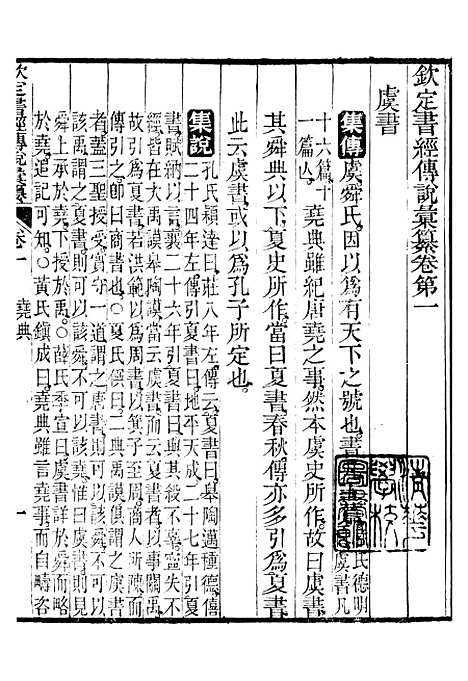 欽定書經傳說彙纂卷第一
虞書
集傳虞舜氏因以爲有天下之號也書
氏德明
虞書凡
十六篇十
一篇亾
堯典雖紀唐堯之事然本虞史所作故曰虞書
其舜典以下夏史所作當曰夏書春秋傳亦多引爲夏書
此云虞書或以爲孔子所定也
集說孔氏穎達曰莊八年左傳云夏書曰皋陶邁種德僖
二十四年左傳引夏書曰地平天成二十七年引夏
書賦納以言襄二十六年引夏書曰與其殺不辜寧失不
經皆在大禹謨皋陶謨當云虞書而云夏書者以事關禹
故引爲夏書若洪範以爲周書以箕子至周商人所陳而
傳引之卽曰商書也○夏氏僎曰二典禹謨總謂之虞書
者蓋三聖授受實守一道謂之唐書則可以該舜不可以
該禹謂之夏書則可以該舜不可以該堯惟曰虞書則見
舜上承於堯下授於禹○薛氏季宣曰虞書詳於舜而略
於堯追記可知○黃氏鎭成曰堯典雖言堯事而自疇咨
欽定書經傳說彙纂
卷一
堯典
一